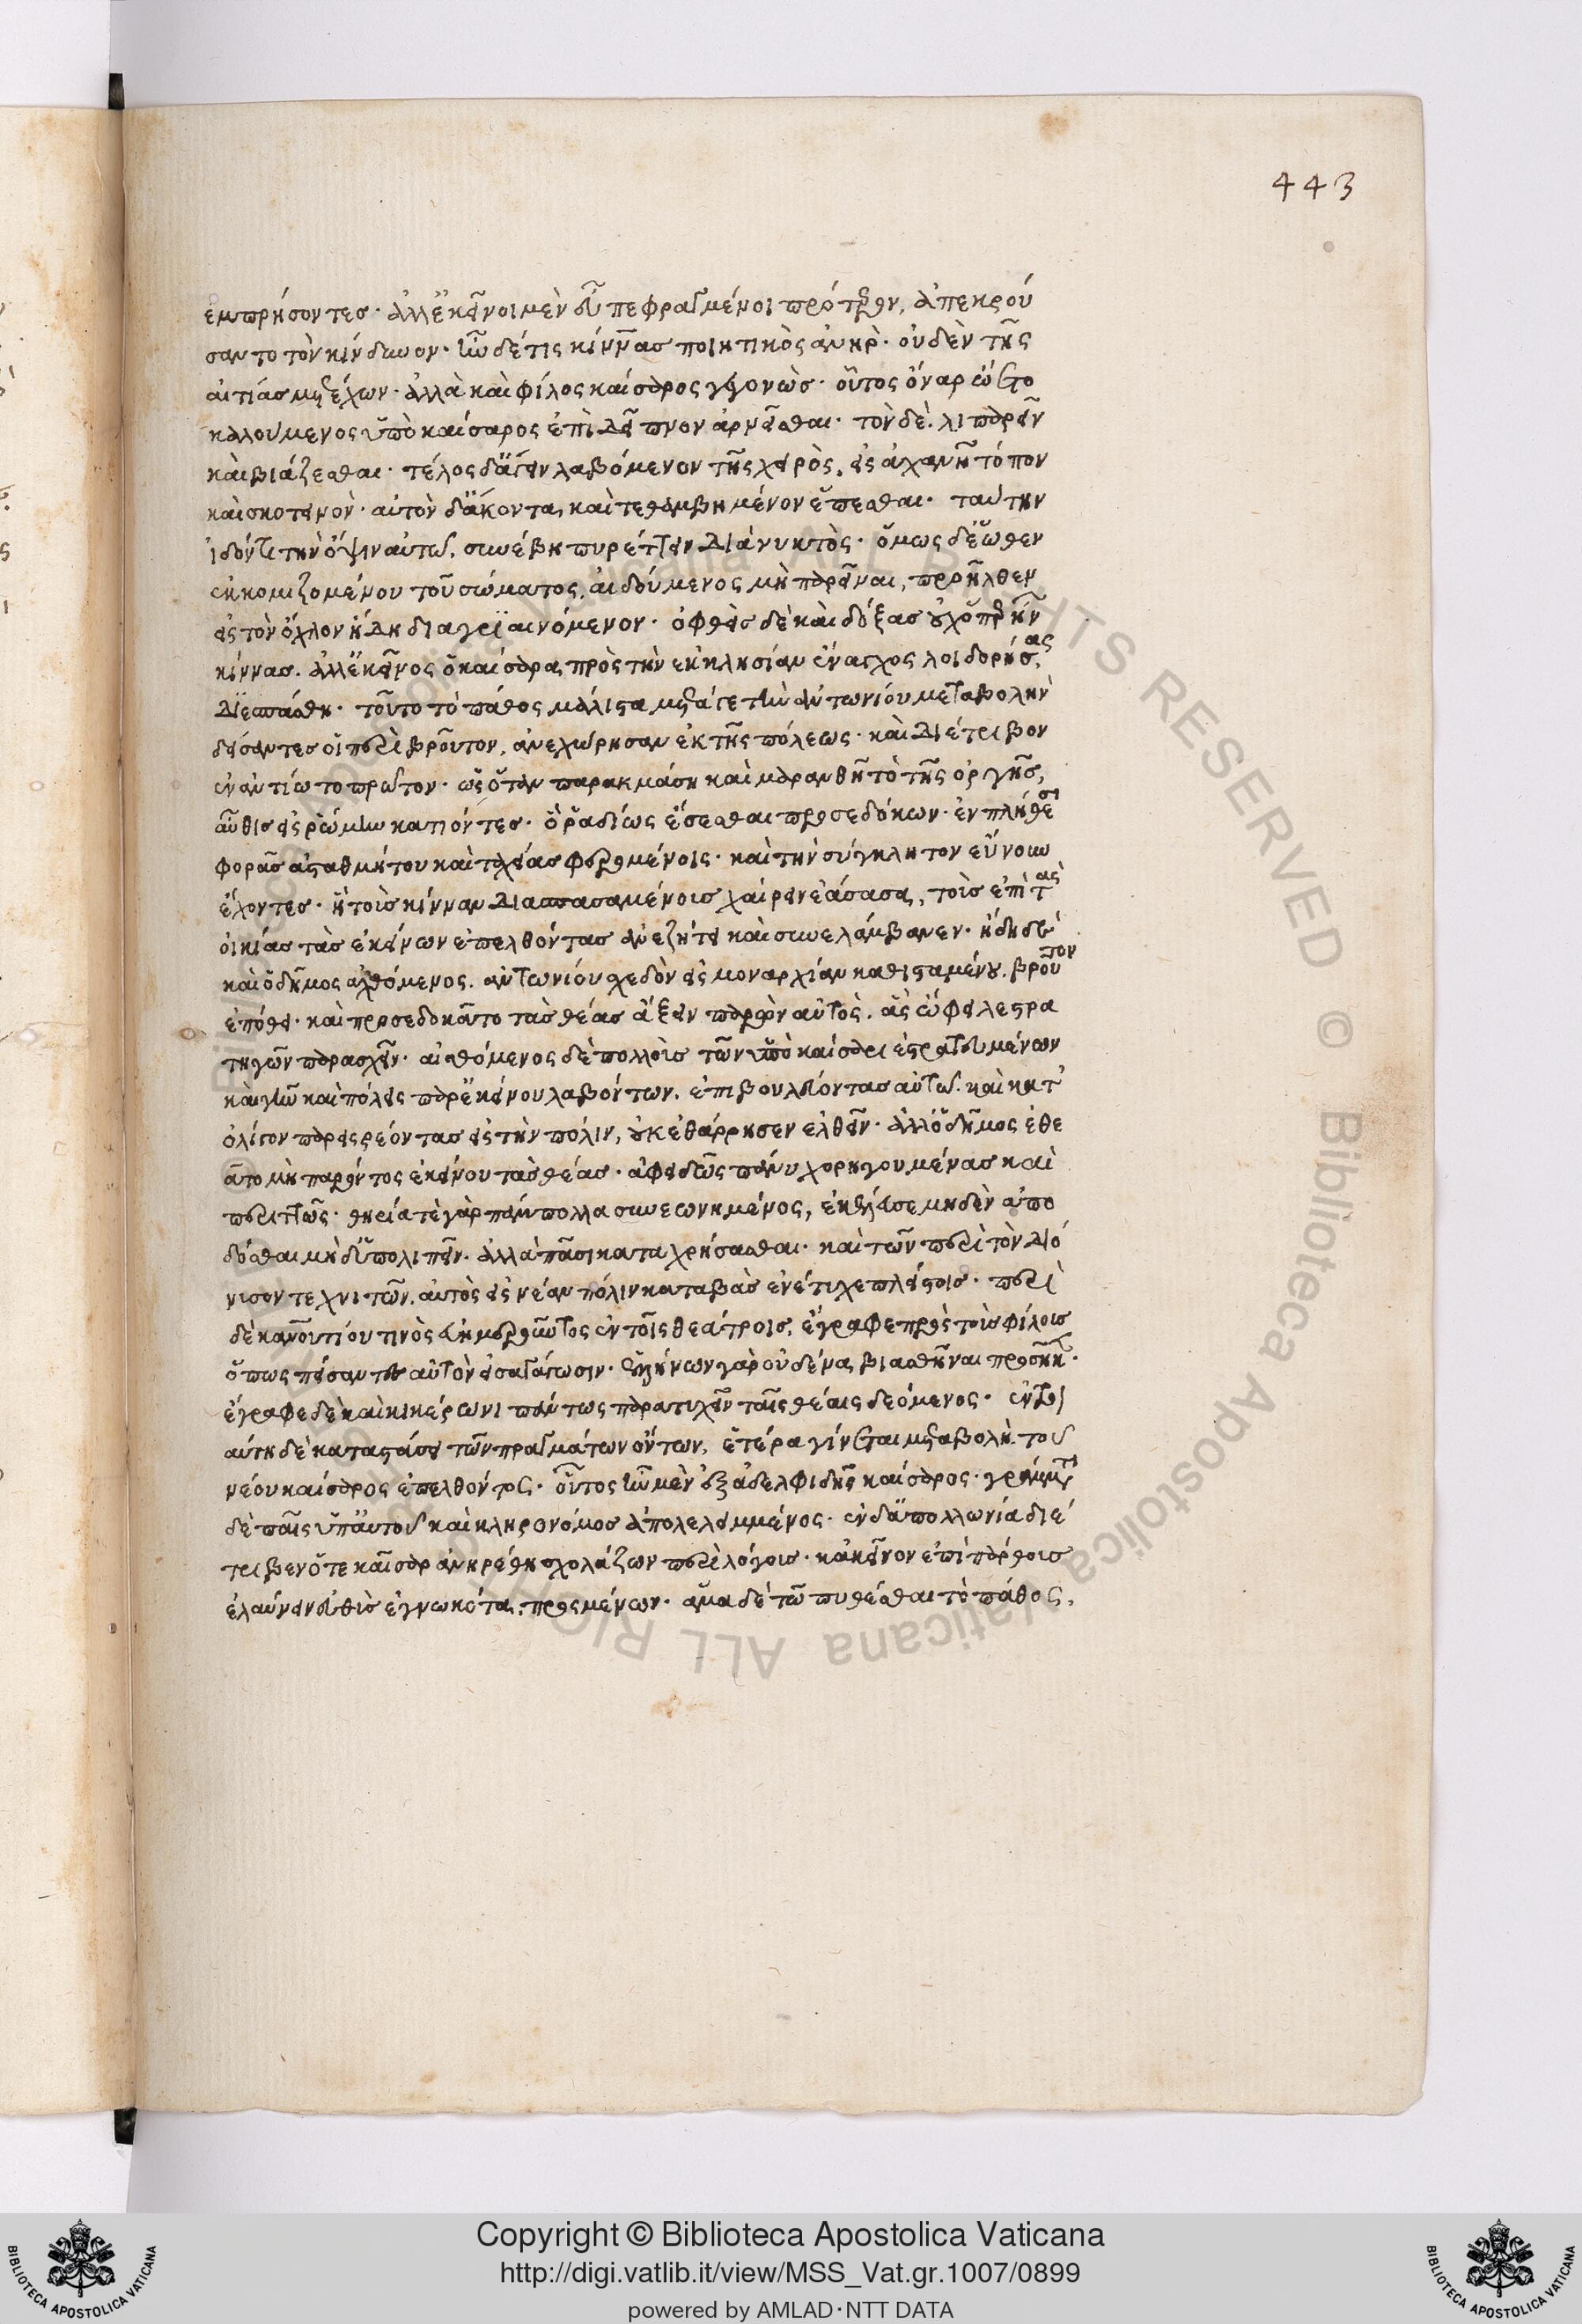 443
ἐμπρήσοντες· ἀλλ' ἐκεῖνοι μὲν εὖ πεφραγμένοι πρότερον, ἀπεκρού
σαντο τὸν κίνδυνον· ἦν δέ τις κίννας ποιητικὸς ἀνὴρ· οὐδὲν τῆς
αἰτίας μετέχων· ἀλλὰ καὶ φίλος καίσαρος γεγονὼς· οὗτος ὄναρ ᾤετο
καλούμενος ὑπὸ καίσαρος ἐπὶ δεῖπνον ἀρνεῖσθαι· τὸν δὲ λιπαρεῖν
καὶ βιάζεσθαι· τέλος δ' ἄγειν λαβόμενον τῆς χειρὸς, εἰς ἀχανῆ τόπον
καὶ σκοτεινὸν· αὐτὸν δ' ἄκοντα, καὶ τεθαμβημένον ἕπεσθαι· ταύτην
ἰδόντι τὴν ὄψιν αὐτῷ, συνέβη πυρέττειν διὰ νυκτὸς· ὅμως δ' ἕωθεν
ἐκκομιζομένου τοῦ σώματος, αἰδούμενος μὴ παρεῖναι, προῆλθεν
εἰς τὸν ὄχλον ἤδη διαγριαινόμενον· ὀφθεὶς δὲ καὶ δόξας οὐχ ὅπερ ἦν
κίννας. ἀλλ' ἐκεῖνος ὃ καίσαρα πρὸς τὴν ἐκκλησίαν ἔναγχος λοιδορήσας,
διεσπάσθη· τοῦτο τὸ πάθος μάλιστα μετά γε τὴν ἀντωνίου μεταβολὴν
δείσαντες οἱ περὶ βροῦτον, ἀνεχώρησαν ἐκ τῆς πόλεως· καὶ διέτριβον
ἐν ἀντίω το πρῶτον· ὡς ὅταν παρακμάση καὶ μαρανθῆ τὸ τῆς ὀργῆς,
αὖθις εἰς ῥώμην κατιόντες· ὃ ῥαδίως ἔσεσθαι προσεδόκων· ἐν πλήθεσι
φορὰς ἀσταθμήτου καὶ ταχείας φερομένοις· καὶ τὴν σύγκλητον εὔνουν
ἔχοντες· ἣ τοῖς κίνναν διασπασαμένοις χαίρειν ἐάσασα, τοῖς ἐπὶ τὰς
οἰκίας τὰς ἐκείνων ἐπελθόντας ἀνεζήτει καὶ συνελάμβανεν· ἤδη δὲ
καὶ ὁ δῆμος ἀχθόμενος. ἀντωνίου σχεδὸν εἰς μοναρχίαν καθισταμένου. βροῦτον
ἐπόθει· καὶ προσεδοκᾶτο τὰς θέας ἄξειν παρὼν αὐτὸς, ἃς ὤφειλε στρα
τηγῶν παρασχεῖν· αἰσθόμενος δὲ πολλοὺς τῶν ὑπὸ καίσαρι ἐστρατευμένων
καὶ γῆν καὶ πόλεις παρ' ἐκείνου λαβόντων, ἐπιβουλεύοντας αὐτῷ. καὶ κατ'
ὀλίγον παρεισρέοντας εἰς τὴν πόλιν, οὐκ ἐθάρρησεν ἐλθεῖν· ἀλλ' ὁ δῆμος ἐθε
ᾶτο μὴ παρόντος ἐκείνου τὰς θέας· ἀφειδῶς πάνυ χορηγουμένας καὶ
περιττῶς· θηρία τὲ γὰρ πάμπολλα συνεωνημένος, ἐκέλευσε μηδὲν ἀπο
δόσθαι μηδ' ὑπολιπεῖν· ἀλλὰ πᾶσι καταχρήσασθαι· καὶ τῶν περὶ τὸν διό
νυσον τεχνιτῶν. αὐτὸς εἰς νέαν πόλιν καταβὰς ἐνέτυχε πλείστοις· περὶ
δὲ κανουτίου τινὸς εὐημεροῦντος ἐν τοῖς θεάτροις, ἔγραφε πρὸς τοὺς φίλους
ὅπως πείσαντες αὐτὸν εἰσαγάγωσιν· ἑλλήνων γὰρ οὐδένα βιασθῆναι προσήκειν·
ἔγραφε δὲ καὶ κικέρωνι πάντως παρατυχεῖν ταῖς θέαις δεόμενος· ἐν τοι
αύτη δὲ καταστάσει τῶν πραγμάτων ὄντων, ἑτέρα γίνεται μεταβολὴ τοῦ
νέου καίσαρος ἐπελθόντος· οὗτος ἦν μὲν ἐξ ἀδελφιδῆς καίσαρος· γράμματι
δὲ παῖς ὑπ' αὐτοῦ καὶ κληρονόμος ἀπολελειμμένος· ἐν δ' ἀπολλωνία διέ
τριβεν ὅτε καῖσαρ ἀνῃρέθη σχολάζων περὶ λόγους· κἀκεῖνον ἐπὶ πάρθους
ἐλαύνειν εὐθὺς ἐγνωκότα, προσμένων· ἅμα δὲ τῶ πυθέσθαι τὸ πάθος,
Copyright © Biblioteca Apostolica Vaticana
http://digi.vatlib.it/view/MSS_Vat.gr.1007/0899
powered by AMLAD·NTT DATA